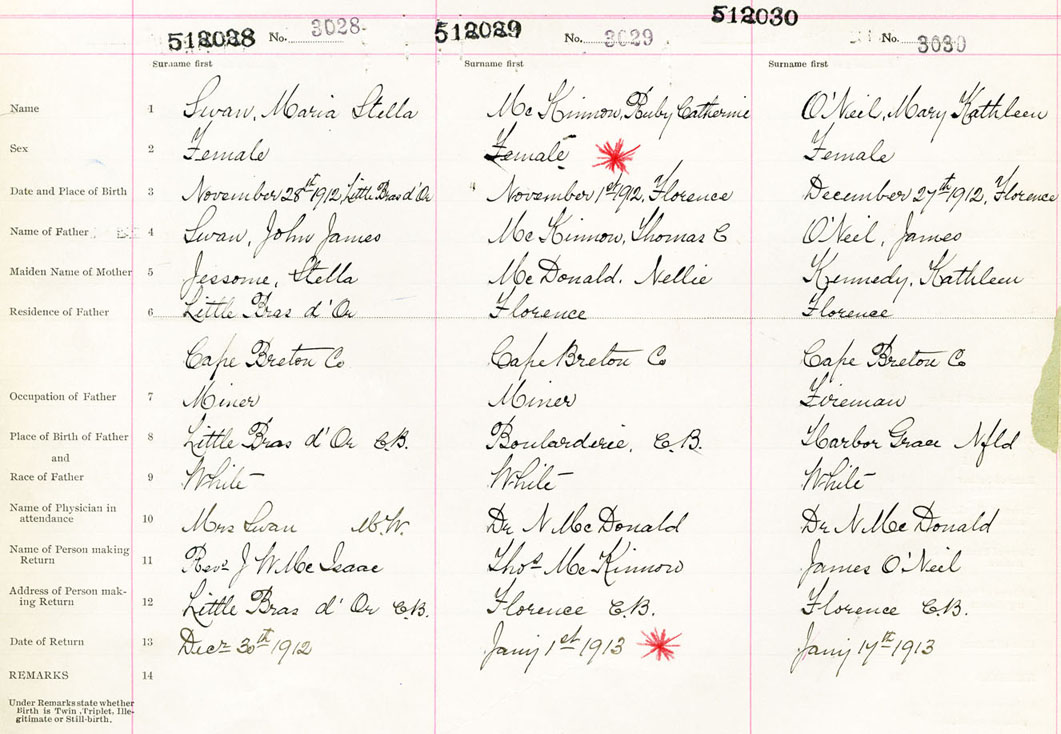 512028 No. 3028 512029 No. 3029 512030 No. 3030
Surname first Surname first Surname first
Name 1 Swan, Maria Stella McKinnon, Ruby Catherine O'Neil, Mary Kathleen
Sex 2 Female Female Female
Date and Place of Birth 3 November 28th 1912, Little Bras d'Or November 1st 1912, Florence December 27th 1912, Florence
Name of Father 4 Swan, John James McKinnon, Thomas C O'Neil, James
Maiden Name of Mother 5 Jessome, Stella McDonald. Nellie Kennedy, Kathleen
Residence of Father 6 Little Bras d'Or Florence Florence
Cape Breton Co Cape Breton Co Cape Breton Co
Occupation of Father 7 Miner Miner Fireman
Place of Birth of Father 8 Little Bras d'Or C.B. Boularderie, C.B. Harbor Grace Nfld
and
Race of Father 9 White White White
Name of Physician in
attendance 10 Mrs Swan M.W. Dr N McDonald Dr N McDonald
Name of Person making
Return 11 Revd J W McIsaac Thos McKinnon James O'Neil
Address of Person mak-
ing Return 12 Little Bras d'Or C.B. Florence C.B. Florence C.B.
Date of Return 13 Decr 30th 1912 Jany 1st 1913 Jany 14th 1913
REMARKS 14
Under Remarks state whether
Birth is Twin, Triplet, Ille-
gitimate or Still-birth.